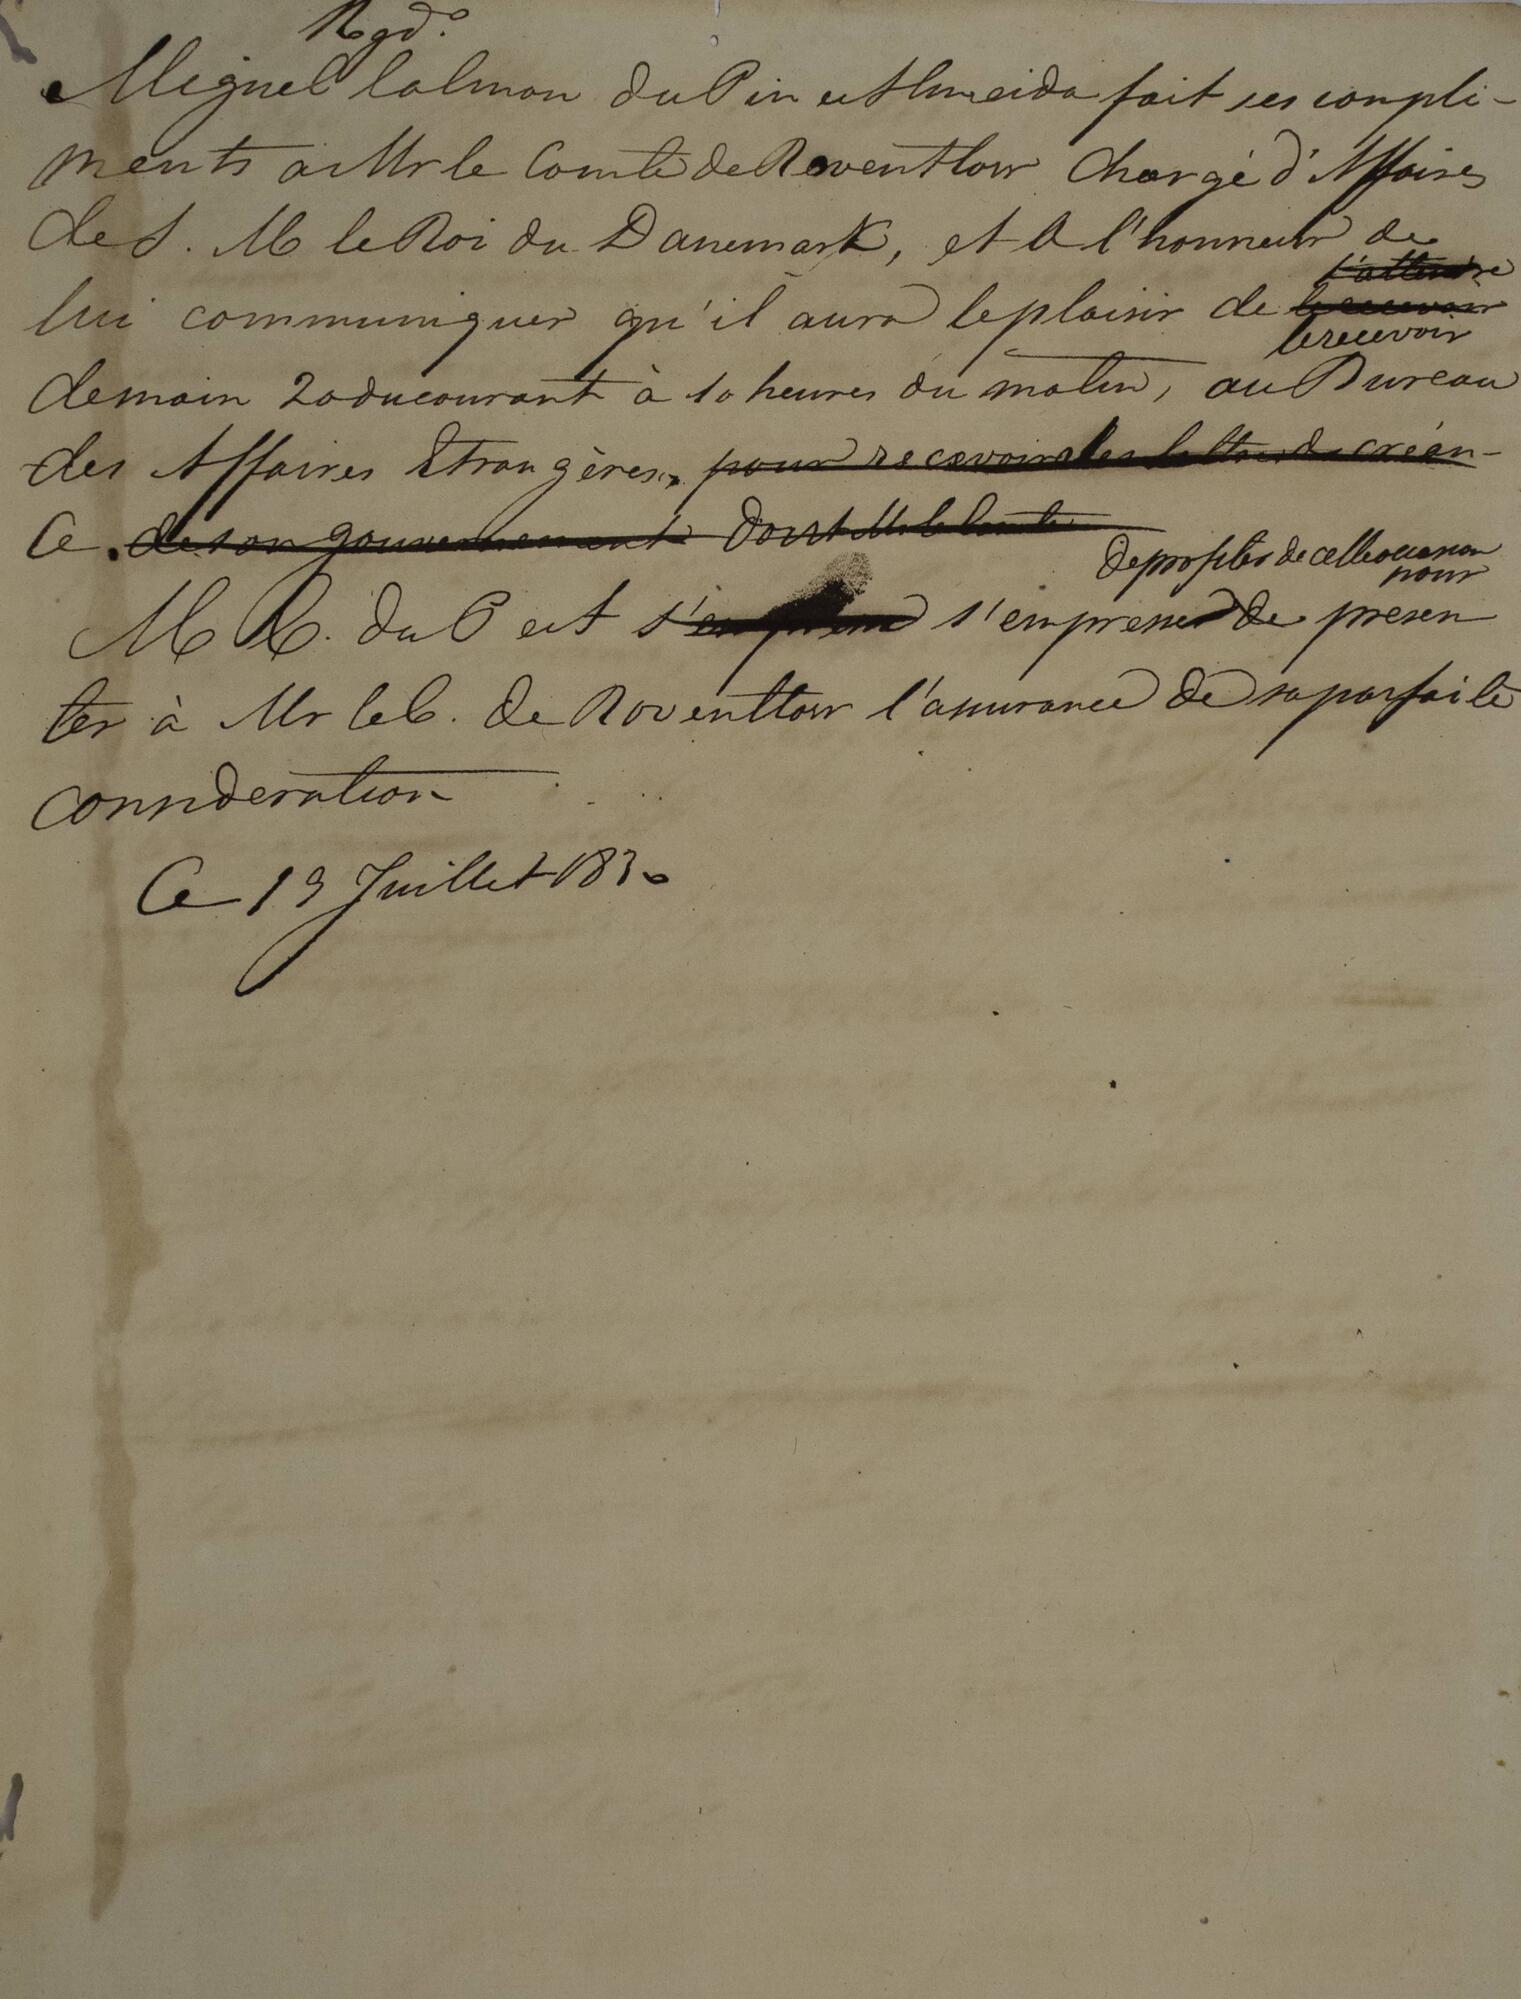 Rgd.º
Miguel Calmon du Pin et Almeida fait ses compli-
ments à Mr le Comte de Reventlow Chargé d'Affaires
de S. M le Roi du Danemark, et A l'honneur de
l'attendre
lui communiquer qu'il aura le plaisir de le recevoir
le recevoir
demain 20 du courant à 10 heures du matin, au Bureau
des Affaires Etrangères, pour recevoir les lettres de créan-
ce de son gouvernement dont Mr le Comte
de profiter de cette occasion
pour
M C. du P et A s' s'empresse de presen
ter à Mr le C. de Roventlow l'assurance de sa parfaite
consideration
Ce 19 Juillet 1830